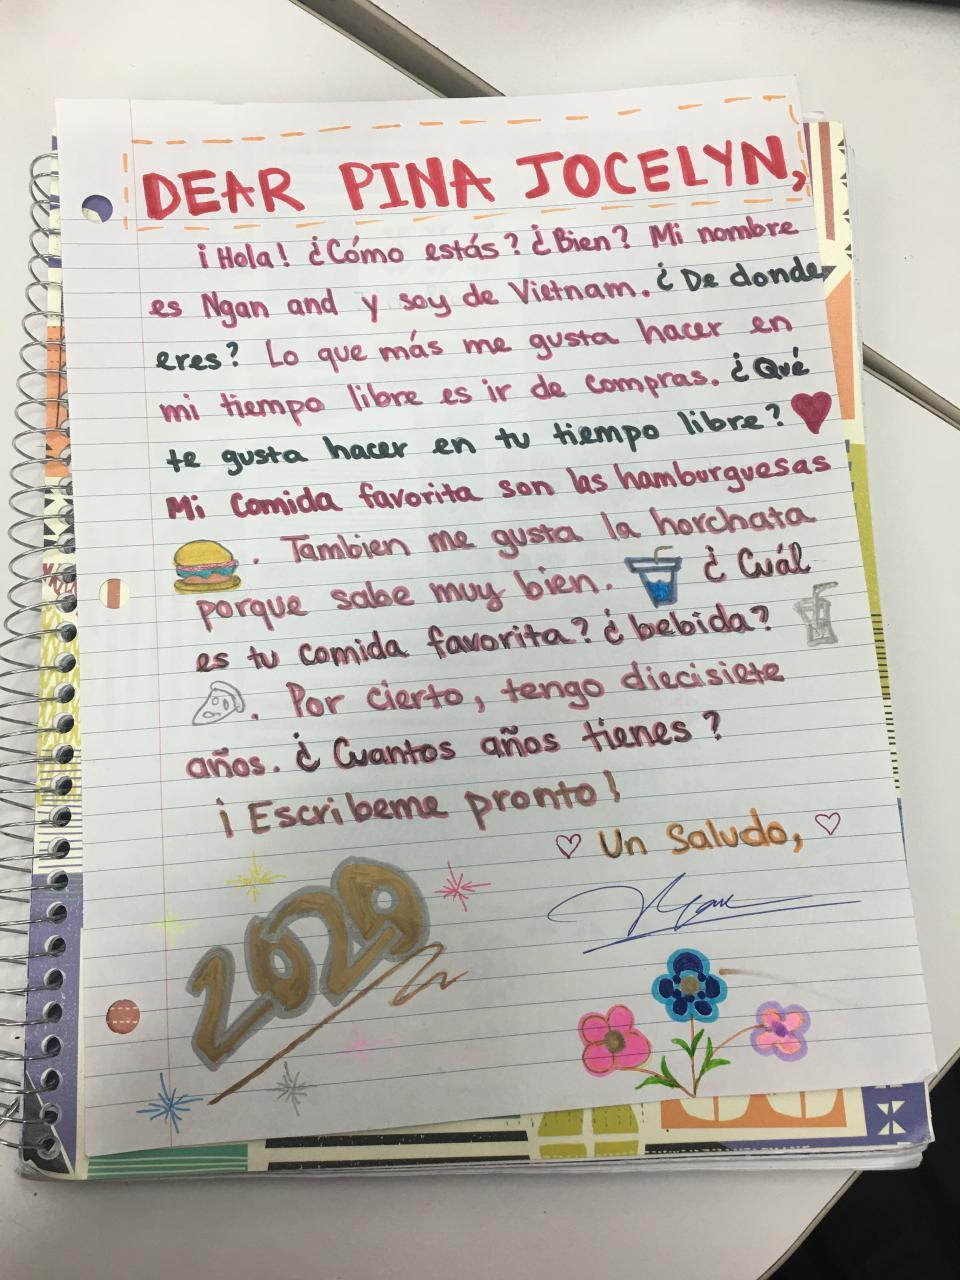 DEAR PINA JOCELYN,
¡Hola! ¿Cómo estás? ¿Bien? Mi nombre
es Ngan and y soy de Vietnam. ¿De donde
eres? Lo que más me gusta hacer en
mi tiempo libre es ir de compras. ¿Qué
te gusta hacer en tu tiempo libre?
Mi comida favorita son las hamburguesas
. Tambien me gusta la horchata
porque sabe muy bien. ¿Cuál
es tu comida favorita? ¿bebida?
. Por cierto, tengo diecisiete
años. ¿Cuantos años tienes?
¡Escribeme pronto!
Un Saludo,
Ngan
2020